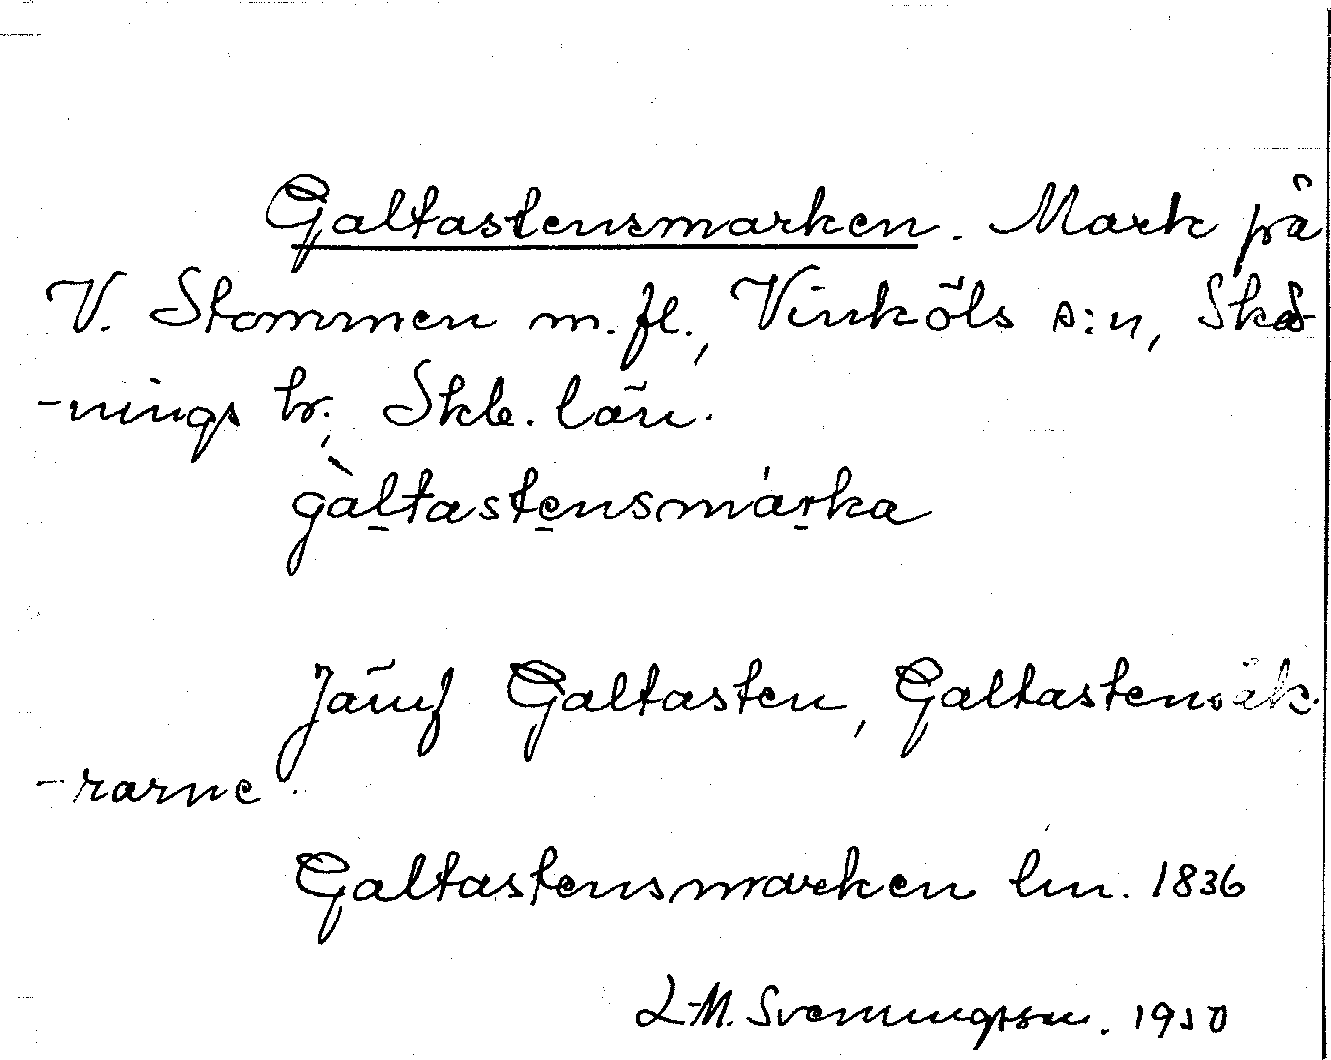 Galtastensmarken. Mark på
V. Stommen m.fl., Vinköls s:n, Skå-
-nings hr., Skb. län.
gàltastensmárka
Jämf Galtasten, Galtastensåk-
-rarne.
Galtastensmarken lm. 1836
L-M. Svenningsson. 1930